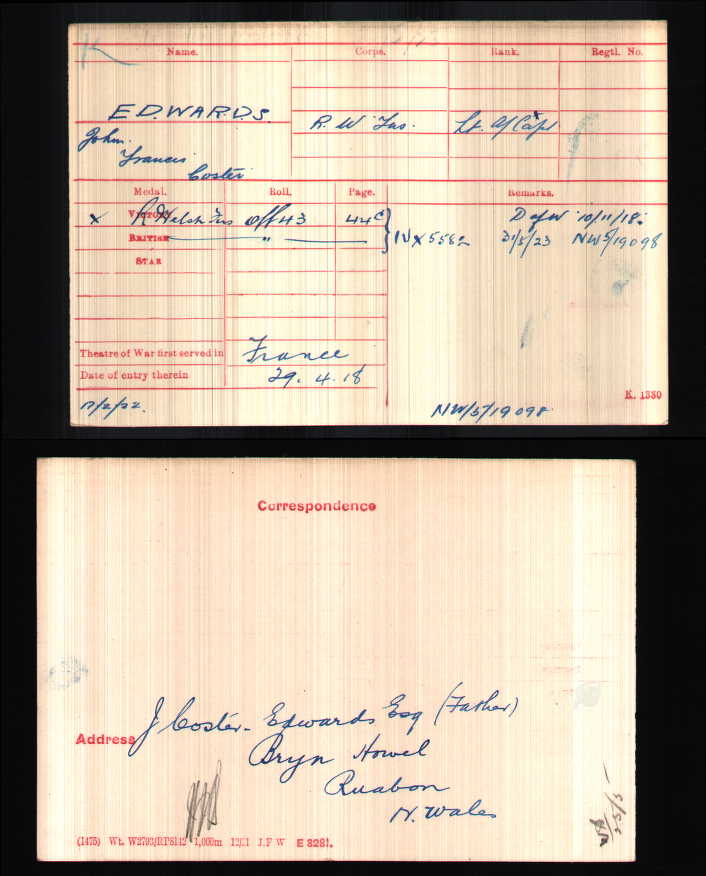 Name. Corps. Rank. Regtl. No.
EDWARDS. R. W. Fus. Lt. A/Capt
John.
Francis
Coster
Medal. Roll. Page. Remarks.
x VICTORY R Welsh Fus Off 43 44C D of W 10/11/18.
BRITISH " IVX5582 31/5/23 NW5/19098
STAR
Theatre of War first served in France
Date of entry therein 29.4.18
17/2/22. NW/5/19098 K. 1380
Correspondence
J Coster-Edwards Esq (Father)
Address
Bryn Howel
Ruabon
N. Wales
1,000m J.F.W E 3281.